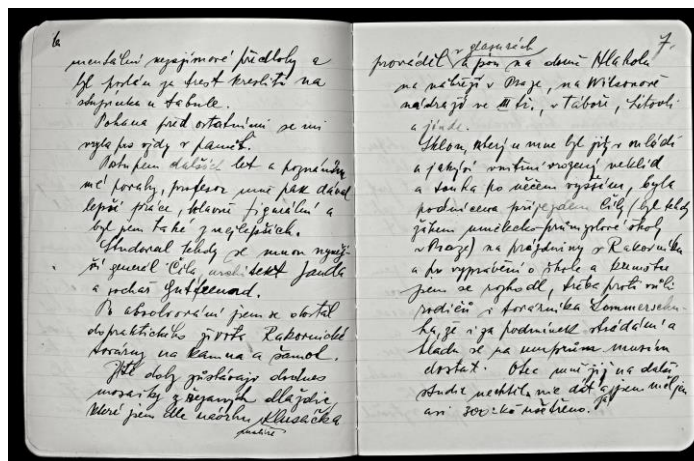 6
mentální nezajímavé předlohy a
byl poslán za trest kreslit na
stupínku u tabule.
Pohana před ostatními se mi
vryla pro vždy v paměť.
Postupem dalších let a poznáním
mé povahy, profesor mně pak dával
lepší práce, hlavně figurální a
byl jsem také z nejlepších.
Studoval tehdy se mnou nyněj-
ší generál Čila, architekt Janda
a sochař Gutfreund.
Po absolvování jsem se dostal
do praktického života Rakovnické
továrny na kamna a šamot.
Z té doby zůstávají dodnes
mosaiky z řezaných dlaždic,
které jsem dle návrhu Klusáčka
malíře
7.
v glasurách
prováděl a jsou na domě Hlahola
na nábřeží v Praze, na Wilsonově
nádraží ve III tř., v Táboře, Litovli
a jinde.
Sklon, který u mne byl již v mládí
a jakýsi vnitřní vrozený neklid
a touha po něčem vyšším, byla
podnícena příjezdem Čily (byl tehdy
žákem umělecko-průmyslové školy
v Praze) na prázdniny v Rakovníku
a po vyprávění o škole a kumštu
jsem se rozhodl, třeba proti vůli
rodičů i továrníka Sommerschu-
ha, že i za podmínek strádání a
hladu se na umprum musím
dostat. Otec mně již na další
studie nechtěl nic dát a já jsem měl jen
asi 300 kč ušetřeno.